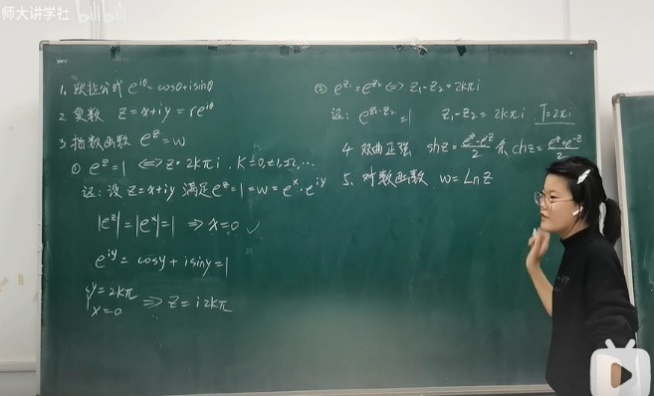 师大讲学社 bilibili
1. 欧拉公式 e^{iθ}=cosθ+isinθ
2. 复数 z=x+iy=re^{iθ}
3 指数函数 e^z=w
① e^z=1 ⟺ z=2kπi, k=0,±1,±2,…
证:设z=x+iy 满足e^z=1=w=e^x·e^{iy}
|e^z|=|e^x|=1 ⇒ x=0 ✓
e^{iy}=cosy+isiny=1
y=2kπ
x=0 ⇒ z=i2kπ
② e^{z₁}=e^{z₂} ⟺ z₁-z₂=2kπi
证: e^{z₁-z₂}=1 z₁-z₂=2kπi T=2πi
4 双曲正弦 shz=\frac{e^z-e^{-z}}{2} 余 chz=\frac{e^z+e^{-z}}{2}
5. 对数函数 w=Lnz